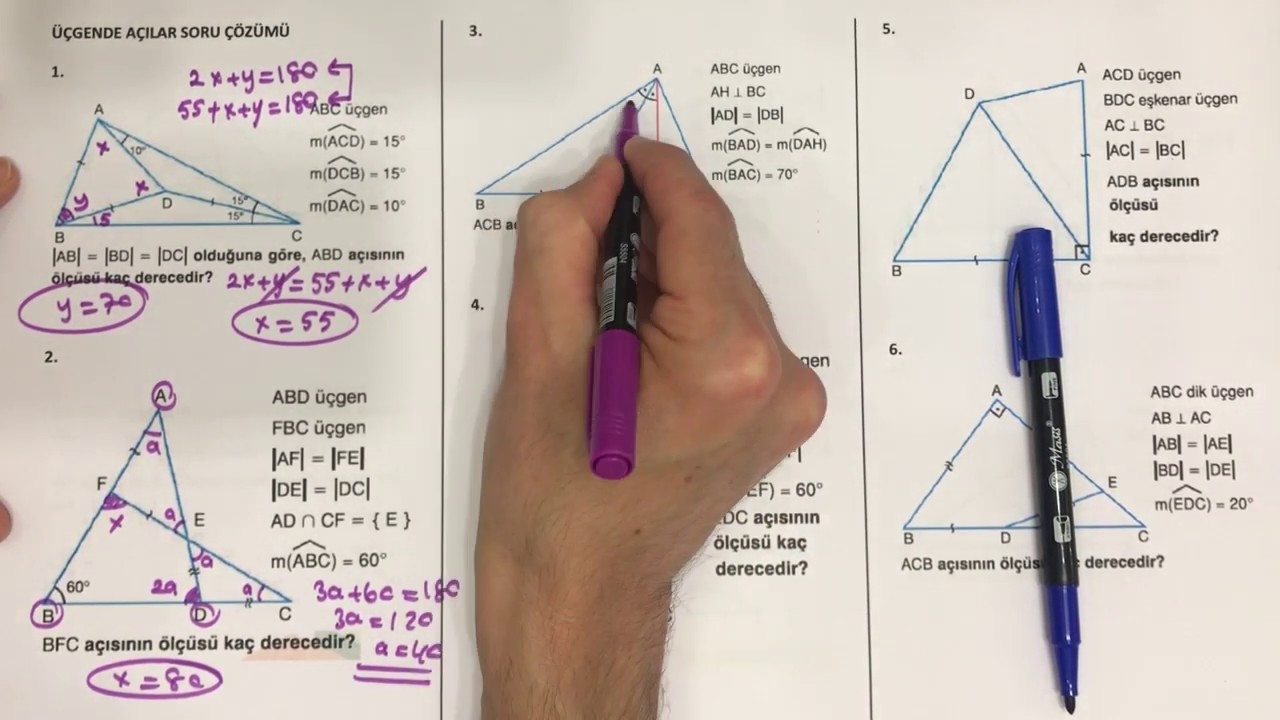 ÜÇGENDE AÇILAR SORU ÇÖZÜMÜ
1.
2x+y=180
55+x+y=180
ABC üçgen
m(ACD) = 15°
m(DCB) = 15°
m(DAC) = 10°
A
x
10°
x
y
D
15
15°
15°
B
C
|AB| = |BD| = |DC| olduğuna göre, ABD açısının
ölçüsü kaç derecedir?
2x+y=55+x+y
y=70
x=55
2.
A
a
F
x
a
E
a
60°
2a
a
B
D
C
ABD üçgen
FBC üçgen
|AF| = |FE|
|DE| = |DC|
AD ∩ CF = { E }
m(ABC) = 60°
3a+60=180
3a=120
a=40
BFC açısının ölçüsü kaç derecedir?
x=80
3.
A
B
ABC üçgen
AH ⊥ BC
|AD| = |DB|
m(BAD) = m(DAH)
m(BAC) = 70°
ACB
4.
EF) = 60°
DC açısının
ölçüsü kaç
derecedir?
5.
A
D
B
C
ACD üçgen
BDC eşkenar üçgen
AC ⊥ BC
|AC| = |BC|
ADB açısının
ölçüsü
kaç derecedir?
6.
A
E
B
D
C
ABC dik üçgen
AB ⊥ AC
|AB| = |AE|
|BD| = |DE|
m(EDC) = 20°
ACB açısının derecedir?
Masis